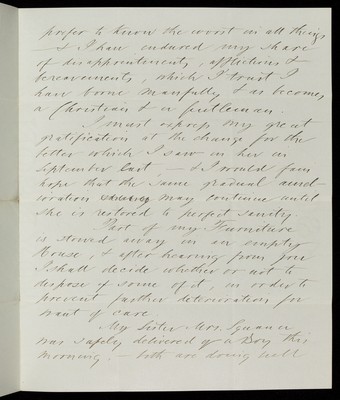 prefer to know the worst in all things
- & I have endured my share
of disappointments, afflictions &
bereavements, which I trust I
have borne manfully & as becomes
a Christian & a Gentleman.
I must express my great
gratification at the change for the
better which I saw in her in
September last, - & I would fain
hope that the same gradual amel-
ioration may continue until
she is restored to perfect sanity.
Part of my Furniture
is stowed away in an empty
House, & after hearing from you
I shall decide whether or not to
dispose of some of it, in order to
prevent further deterioration for
want of care
My Sister Mrs.
was safely delivered of a Boy this
morning. - both are doing well